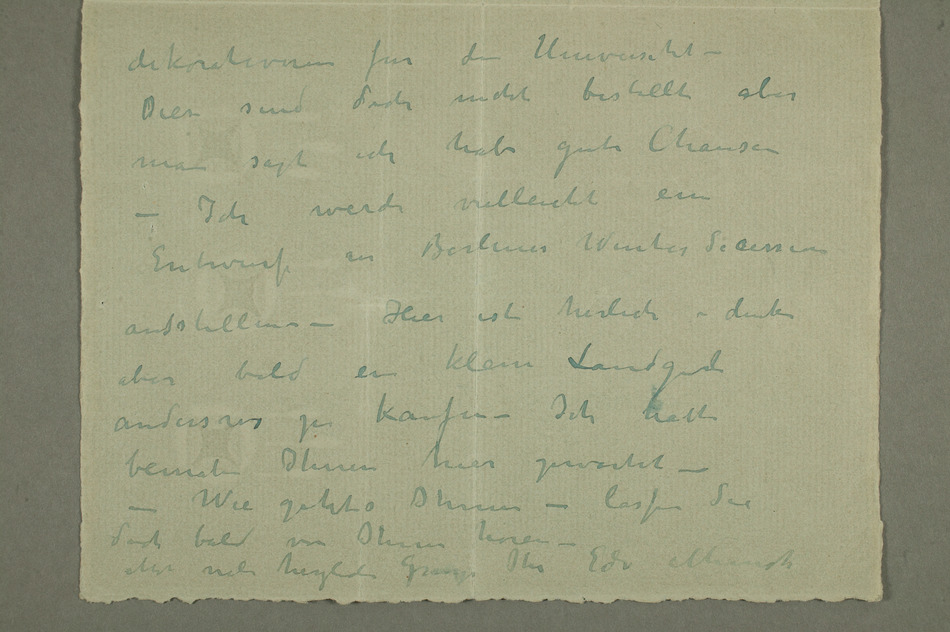 dekorationen für die Universitet –
Dies sind doch nicht bestellt aber
man sagt ich habe gute Chansen
– Ich werde vielleicht ein
Entwurf in Berliner Winter Secession
ausstellen – Hier ist herlich – denke
aber bald ein klein Landgut
anderswo zu kaufen – Ich hatte
beinahe Ihnen hier
– Wie gehts Ihnen – lassen Sie
doch bald von Ihnen hören –
viele herzliche Ihr Edv Munch